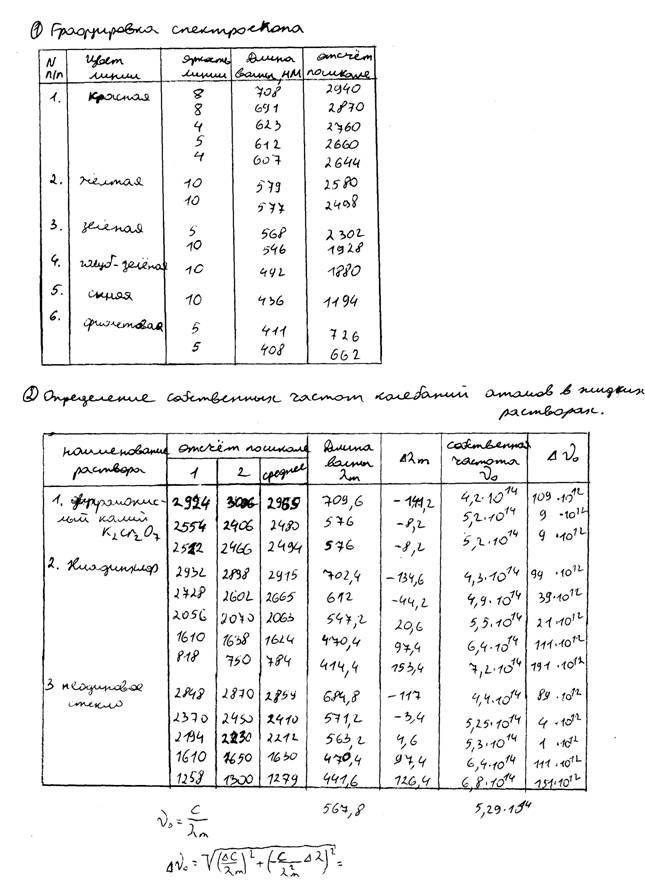 ① Градуировка спектроскопа
N п/п | Цвет линии | яркость линии | Длина волны, нм | отсчёт по шкале
1. | Красная | 8 | 708 | 2940
8 | 691 | 2870
4 | 623 | 2760
5 | 612 | 2660
4 | 607 | 2644
2. | жёлтая | 10 | 579 | 2580
10 | 577 | 2498
3. | зелёная | 5 | 568 | 2302
10 | 546 | 1928
4. | голуб-зелёная | 10 | 492 | 1880
5. | синяя | 10 | 436 | 1194
6. | фиолетовая | 5 | 411 | 726
5 | 408 | 662
② Определение собственных частот колебаний атомов в жидких
растворах.
наименование раствора | отсчёт по шкале | Длина волны λm | Δλm | собственная частота ν₀ | Δν₀
1 | 2 | среднее
1. | 2924 | 3006 | 2965 | 709,6 | -141,2 | 4,2·10¹⁴ | 109·10¹²
лый калий | 2554 | 2406 | 2480 | 576 | -8,2 | 5,2·10¹⁴ | 9·10¹²
K₂Cr₂O₇ | 2522 | 2466 | 2494 | 576 | -8,2 | 5,2·10¹⁴ | 9·10¹²
2. | 2932 | 2898 | 2915 | 702,4 | -134,6 | 4,3·10¹⁴ | 99·10¹²
2728 | 2602 | 2665 | 612 | -44,2 | 4,9·10¹⁴ | 39·10¹²
2056 | 2070 | 2063 | 547,2 | 20,6 | 5,5·10¹⁴ | 21·10¹²
1610 | 1638 | 1624 | 470,4 | 97,4 | 6,4·10¹⁴ | 111·10¹²
818 | 750 | 784 | 414,4 | 153,4 | 7,2·10¹⁴ | 191·10¹²
3 неодимовое | 2848 | 2870 | 2859 | 684,8 | -117 | 4,4·10¹⁴ | 89·10¹²
стекло | 2370 | 2450 | 2410 | 571,2 | -3,4 | 5,25·10¹⁴ | 4·10¹²
2194 | 2230 | 2212 | 563,2 | 4,6 | 5,3·10¹⁴ | 1·10¹²
1610 | 1650 | 1630 | 470,4 | 97,4 | 6,4·10¹⁴ | 111·10¹²
1258 | 1300 | 1279 | 441,6 | 126,4 | 6,8·10¹⁴ | 151·10¹²
567,8 | 5,29·10¹⁴
ν₀ = C/λm
Δν₀ = √((ΔC/λm)² + (-C/λ²m Δλ)²) =